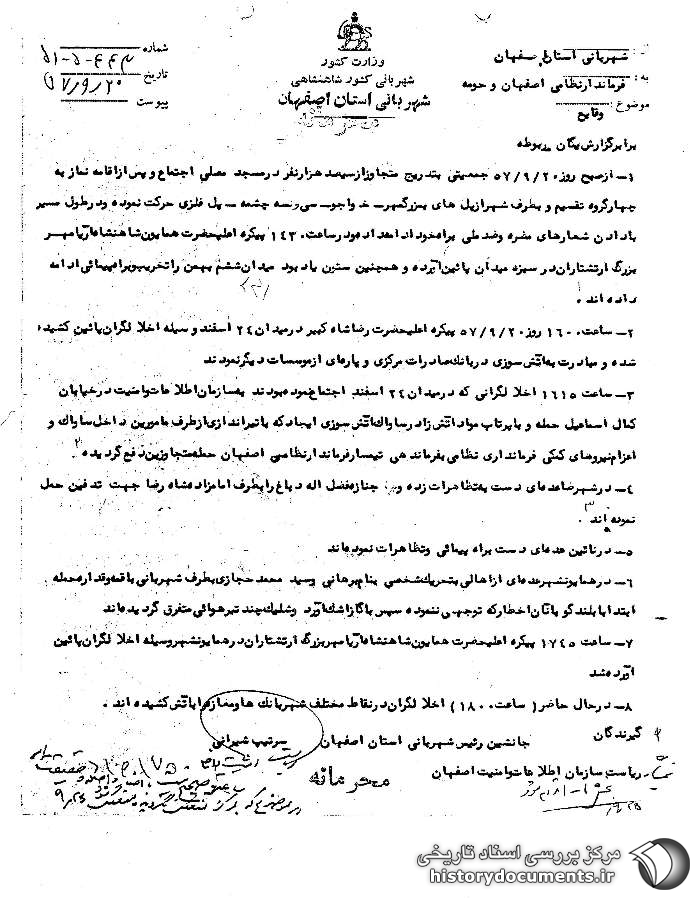 وزارت کشور
شهربانی کشور شاهنشاهی
شهربانی استان اصفهان
شماره
تاریخ ۵۷/۹/۲۰
پیوست
شهربانی استان اصفهان
به : فرماندار نظامی اصفهان و حومه
موضوع : وقایع
برابر گزارش یگان مربوطه
۱- از صبح روز ۵۷/۹/۲۰ جمعیتی بتدریج متجاوز از سیصد هزار نفر در مسجد مصلی اجتماع و پس از اقامه نماز به
چهار گروه تقسیم و بطرف شهر از پل های بزرگمهر - خواجو - سی و سه چشمه - پل فلزی حرکت نموده و در طول مسیر
با دادن شعارهای مضره و ضد ملی براه خود ادامه داده و در ساعت ۱۴۳۰ پیکره اعلیحضرت همایون شاهنشاه آریامهر
بزرگ ارتشتاران در سبزه میدان پائین آورده و همچنین ستون یاد بود میدان ششم بهمن را تخریب و براهپیمائی ادامه
داده اند .
۲- ساعت ۱۶۰۰ روز ۵۷/۹/۲۰ پیکره اعلیحضرت رضا شاه کبیر در میدان ۲۴ اسفند وسیله اخلا لگران پائین کشیده
شده و مبادرت به آتش سوزی در بانک صادرات مرکزی و پاره ای از موسسات دیگر نمودند
۳- ساعت ۱۶۱۵ اخلا لگرانی که در میدان ۲۴ اسفند اجتماع نموده بودند به سازمان اطلا عات و امنیت در خیابان
کمال اسماعیل حمله و با پرتاب مواد آتش زا در ساواک آتش سوزی ایجاد که با تیراندازی از طرف مامورین داخل ساواک و
اعزام نیروهای کمکی فرمانداری نظامی بفرماندهی تیمسار فرماندار نظامی اصفهان حمله متجاوزین دفع گردیده .
۴- در شهرضا عده ای دست به تظاهرات زده و جنازه فضل اله دباغ را بطرف امامزاده شاه رضا جهت تدفین حمل
نموده اند .
۵- در نائین عده ای دست براه پیمائی و تظاهرات نموده اند
۶- در همایونشهر عده ای از اهالی بتحریک شخصی بنام برهانی و سید محمد حجازی بطرف شهربانی با قمه و قداره حمله
ابتدا با بلندگو بآنان اخطار که توجهی ننموده سپس با گاز اشک آور و شلیک چند تیر هوائی متفرق گردیده اند
۷- ساعت ۱۷۴۵ پیکره اعلیحضرت همایون شاهنشاه آریامهر بزرگ ارتشتاران در همایونشهر وسیله اخلا لگران پائین
آورده شد
۸- در حال حاضر ( ساعت ۱۸۰۰ ) اخلا لگران در نقاط مختلف شهر بانک ها و مغازه ها را بآتش کشیده اند .
جانشین رئیس شهربانی استان اصفهان سرتیپ شیرانی
گیرندگان
ریاست سازمان اطلا عات و امنیت اصفهان
محرمانه
مرکز بررسی اسناد تاریخی
historydocuments.ir